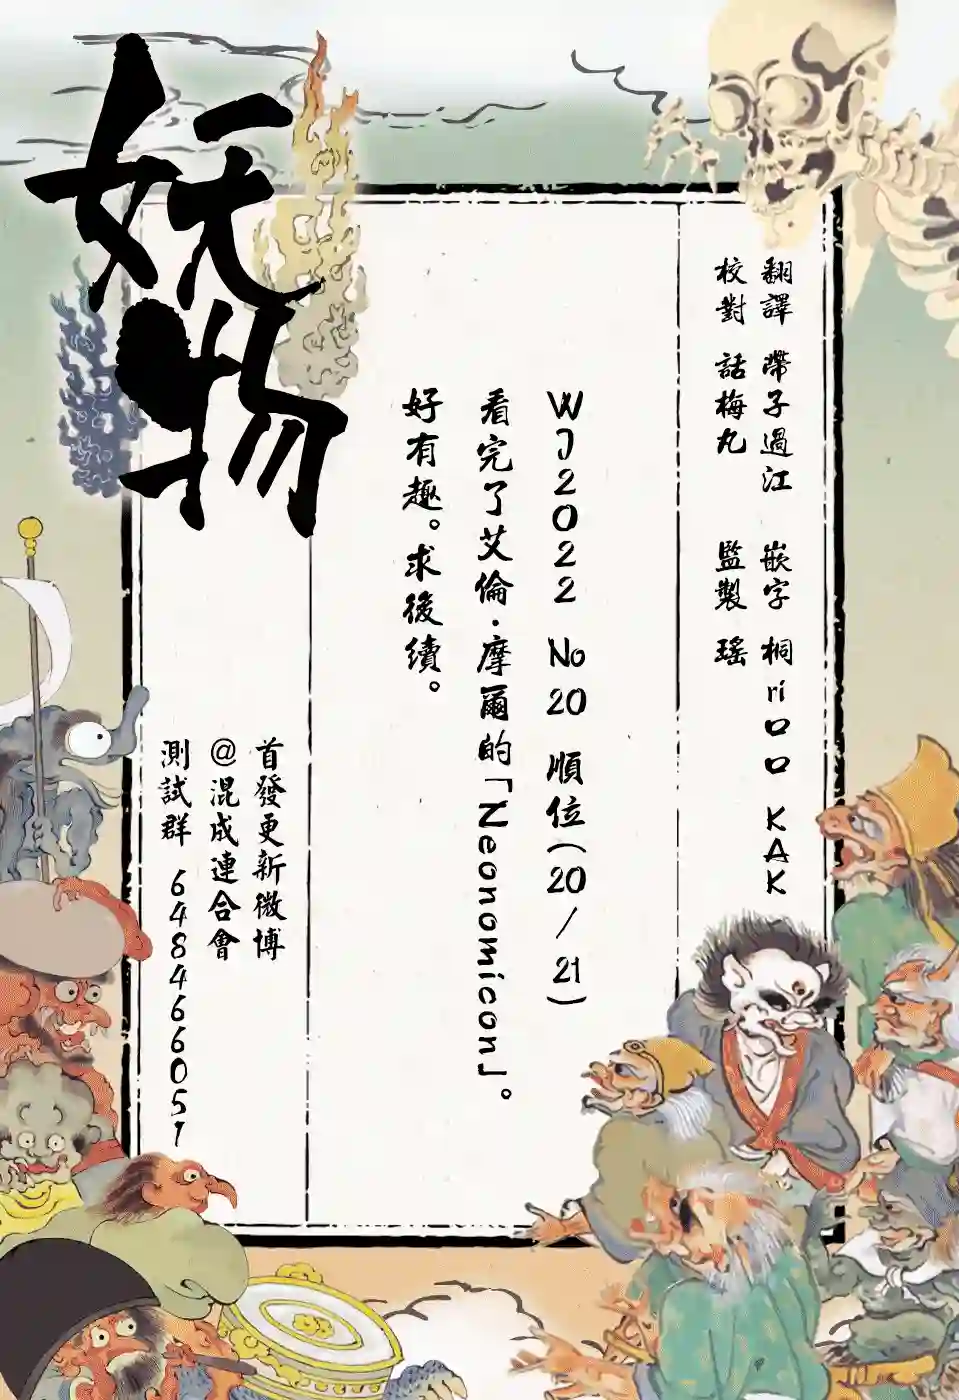 妖物
翻譯 帶子過江 嵌字 桐ri口口 KAK
校對 話梅丸 監製 瑤
WJ2022 No20 順位(20/21)
看完了艾倫·摩爾的「Neonomicon」。
好有趣。求後續。
首發更新微博
@混成連合會
測試群 648466051